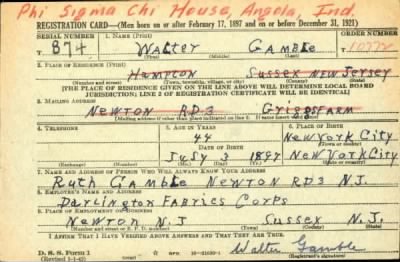 Phi Sigma Chi House, Angola, Ind.
REGISTRATION CARD—(Men born on or after February 17, 1897 and on or before December 31, 1921)
SERIAL NUMBER 1. NAME (Print) ORDER NUMBER
874 Walter Gamble
T
(First) (Middle) (Last)
2. PLACE OF RESIDENCE (Print)
Hampton Sussex New Jersey
(Number and street) (Town, township, village, or city) (County) (State)
[THE PLACE OF RESIDENCE GIVEN ON THE LINE ABOVE WILL DETERMINE LOCAL BOARD
JURISDICTION; LINE 2 OF REGISTRATION CERTIFICATE WILL BE IDENTICAL]
3. MAILING ADDRESS
Newton RD3 Griggs Farm
[Mailing address if other than place indicated on line 2. If same insert word same]
4. TELEPHONE 5. AGE IN YEARS 6. PLACE OF BIRTH
44 New York City
DATE OF BIRTH (Town or county)
July 3 1897 New York City
(Exchange) (Number) (Mo.) (Day) (Yr.) (State or country)
7. NAME AND ADDRESS OF PERSON WHO WILL ALWAYS KNOW YOUR ADDRESS
Ruth Gamble Newton RD3 N.J.
8. EMPLOYER'S NAME AND ADDRESS
Darlington Fabrics Corps
9. PLACE OF EMPLOYMENT OR BUSINESS
Newton N.J Sussex N.J.
(Number and street or R. F. D. number) (Town) (County) (State)
I AFFIRM THAT I HAVE VERIFIED ABOVE ANSWERS AND THAT THEY ARE TRUE.
D. S. S. Form 1 Walter Gamble
(Revised 1-1-42) (over) GPO (Registrant's signature)